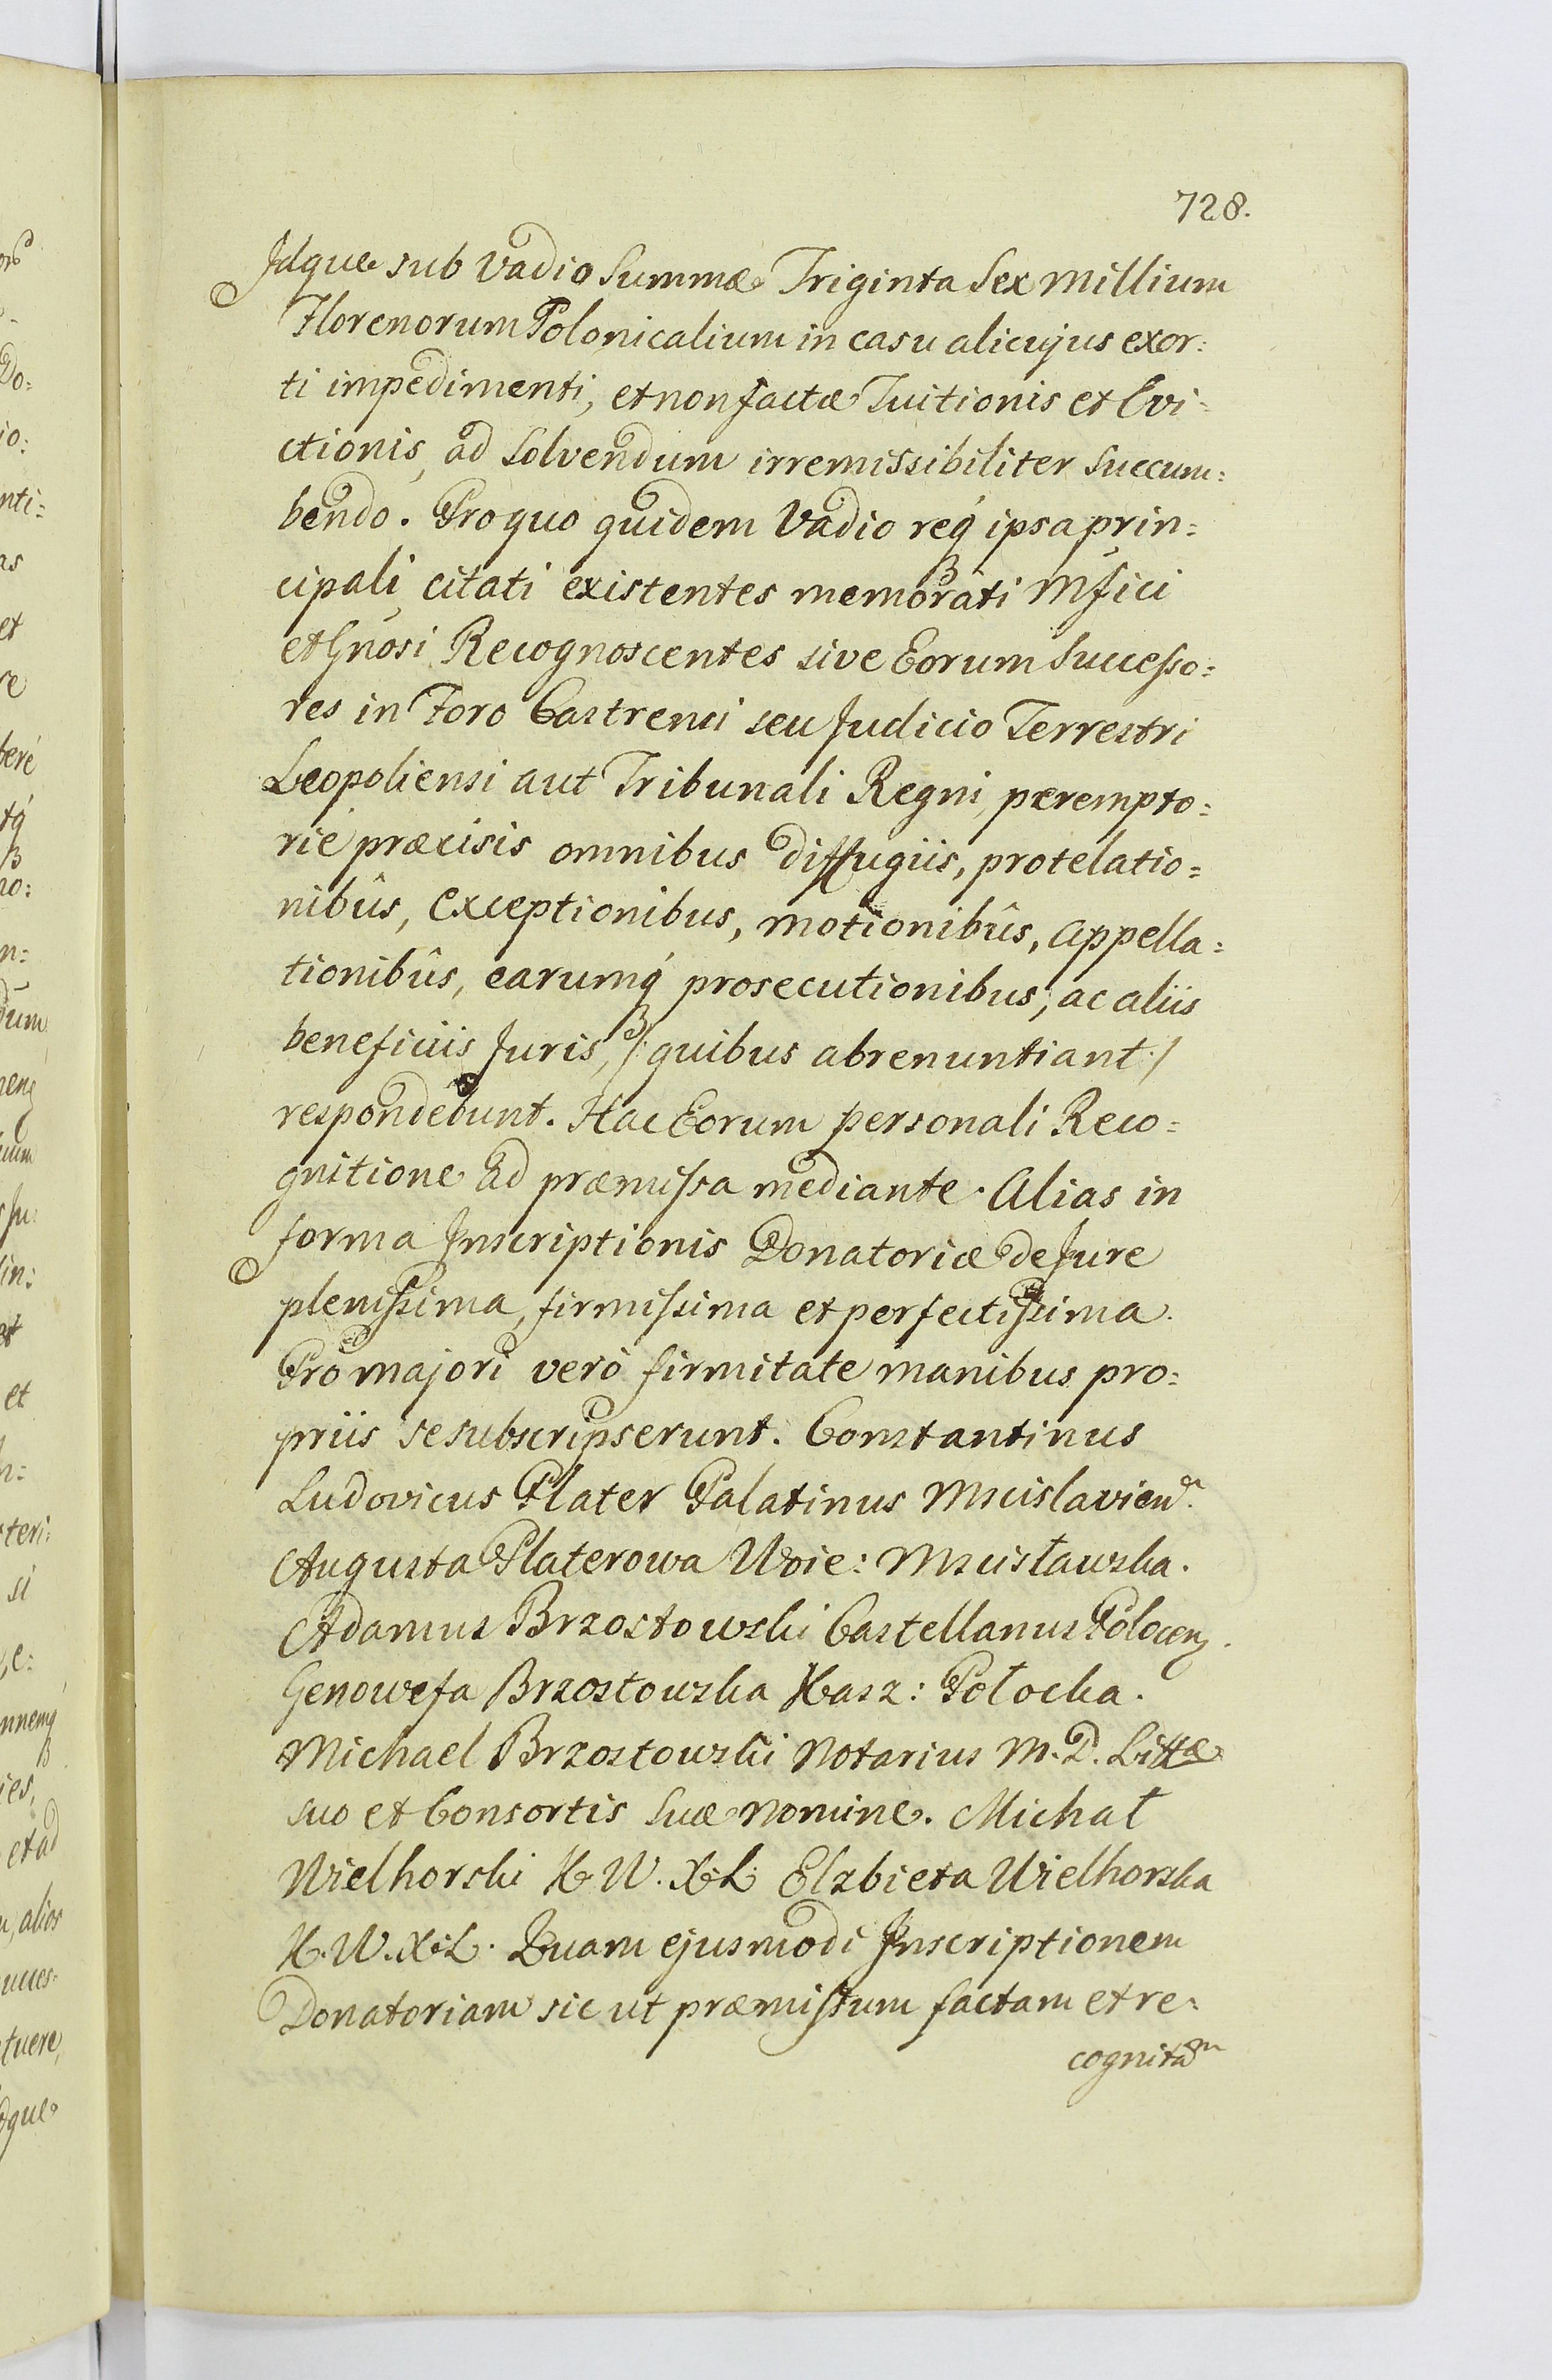 728.
Idque sub vadio Summæ Triginta Sex Millium
Florenorum Polonicalium in casu alicujus exor:
ti impedimenti, et non factæ Tuitionis et Evi:
ctionis, ad Solvendum irremissibiliter Succum:
bendo. Pro quo quidem Vadio req́ ipsa prin:
cipali citati existentes memorati Mfici
et Gnosi Recognoscentes sive Eorum Successo:
res in Foro Castrensi seu Judicio Terrestri
Leopoliensi aut Tribunali Regni, perempto:
rié præcisis omnibus diffugiis, protelatio:
nibûs, Exceptionibus, motionibûs, Appella:
tionibûs, earumq́ prosecutionibus, ac aliis
beneficiis Juris, /: quibus abrenuntiant :/
respondebunt. Hac Eorum personali Reco:
gnitione ad præmissa mediante. Alias in
forma Inscriptionis Donatoriæ de Jure
plenissima, firmissima et perfectissima.
Pro majori verò firmitate manibus pro:
priis se subscripserunt. Constantinus
Ludovicus Plater Palatinus Mscislavien.
Augusta Platerowa Woie: Mscisławska.
Adamus Brzostowski Castellanus Polocen.
Genowefa Brzostowska Kasz: Połocka.
Michael Brzostowski Notarius M. D. Littæ
suo et Consortis suæ Nomine. Michał
Wielhorski K. W. X. L. Elzbieta Wielhorska
K. W. X. L. Quam ejusmodi Inscriptionem
Donatoriam sic ut præmissum factam et re:
cognitam